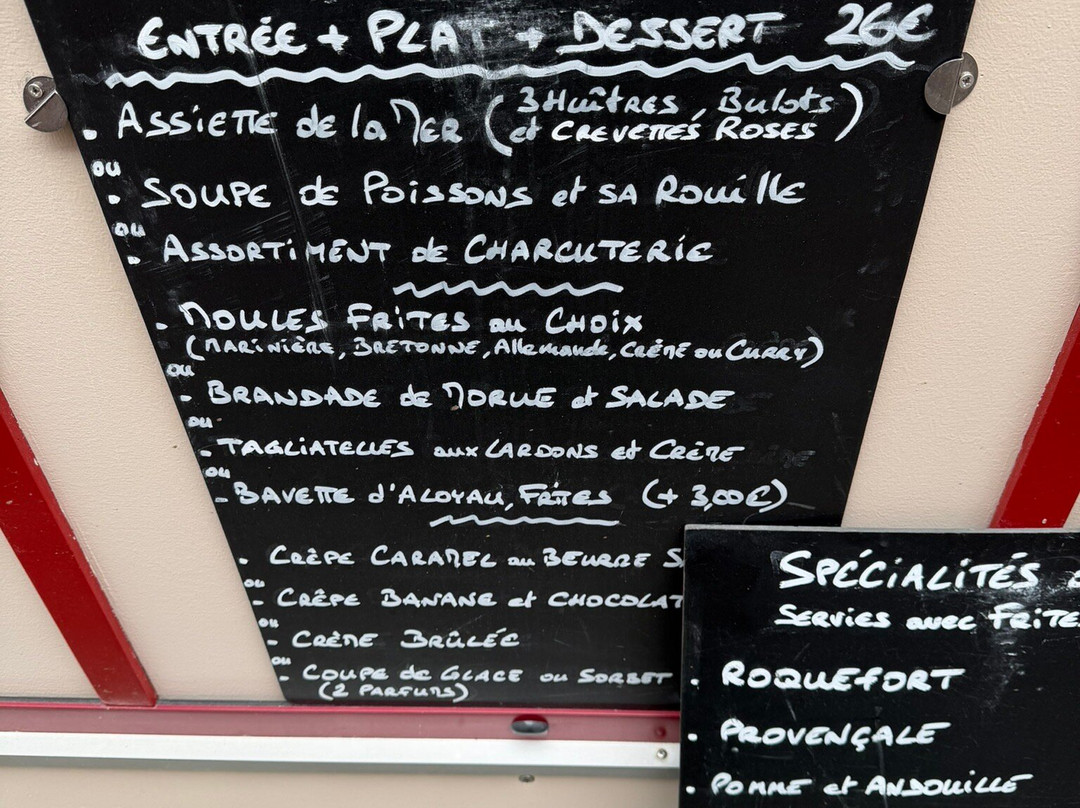 ENTRÉE + PLAT + DESSERT 26€
• ASSIETTE de la MER (3 HUÎTRES, Bulots
et CREVETTES ROSES)
ou
• SOUPE de POISSONS et SA ROUILLE
ou
• ASSORTIMENT de CHARCUTERIE
• MOULES FRITES au CHOIX
(MARINIÈRE, BRETONNE, Allemande, CRÈME ou CURRY)
ou
- BRANDADE de MORUE et SALADE
ou
• TAGLIATELLES aux LARDONS et CRÈME
ou
- BAVETTE d'ALOYAU, FRITES (+ 3,00€)
• CRÊPE CARAMEL au BEURRE S
ou
- CRÊPE BANANE et CHOCOLAT
ou
- CRÈME BRÛLÉE
ou
- COUPE de GLACE ou SORBET
(2 PARFUMS)
SPÉCIALITÉS
SERVIES avec FRITES
• ROQUEFORT
• PROVENÇALE
• POMME et ANDOUILLE